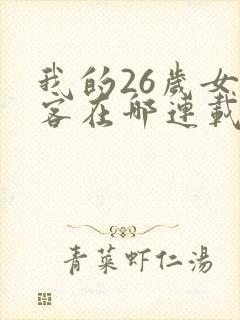 我的26歲女
客在哪連載
青菜虾仁湯